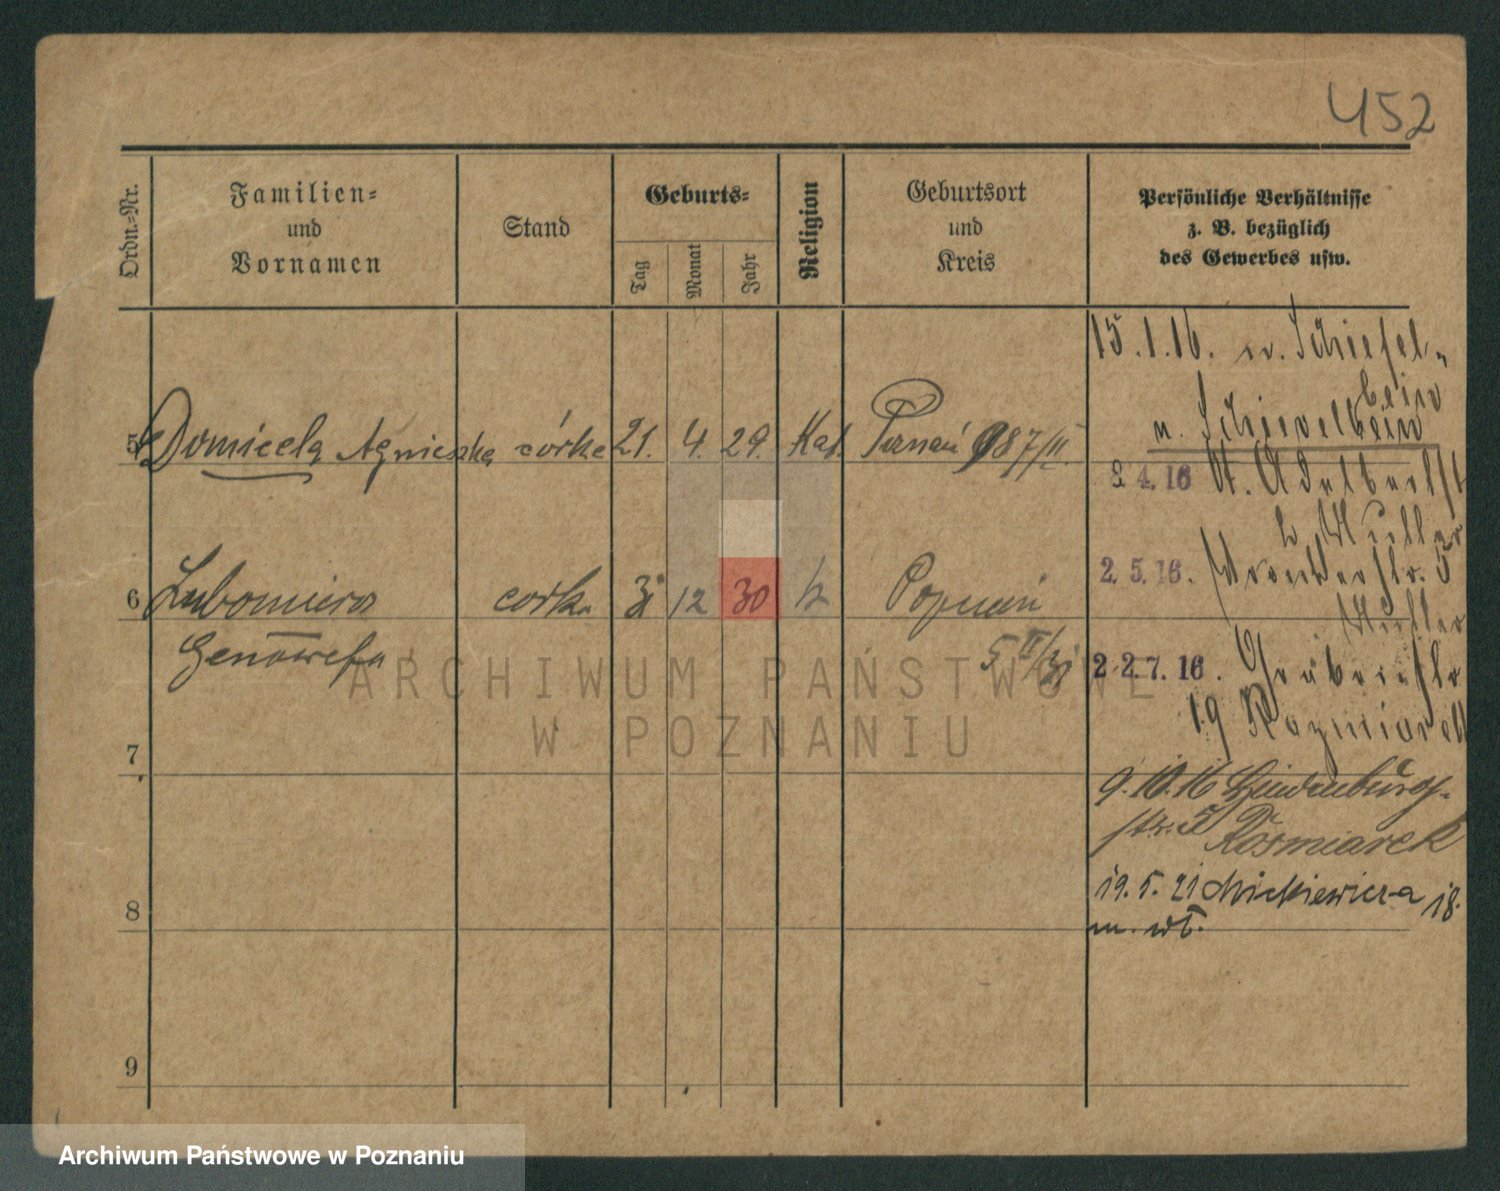 452
Ordn.-Nr.
Familien-
und
Vornamen
Stand
Geburts-
Tag
Monat
Jahr
Religion
Geburtsort
und
Kreis
Persönliche Verhältnisse
z. B. bezüglich
des Gewerbes usw.
5 Domicela Agnieszka córka 21. 4. 29. Kat. Poznań 987/II
6 Lubomira corka 3 12 30 Poznań
Genowefa
5 II/31
7
8
9
15.1.16. n. Schiefel-
bein
n. Schievelbein
3 4. 16 St. Adalbertst
2 Müller
2. 5. 16. 5
Müller
2 2. 7. 16.
19 Kazmiarek
9.10.16 Hindenburg-
str. 3 Kośmiarek
19. 5. 21 Mickiewicza 18.
m. wł.
ARCHIWUM PAŃSTWOWE
W POZNANIU
Archiwum Państwowe w Poznaniu